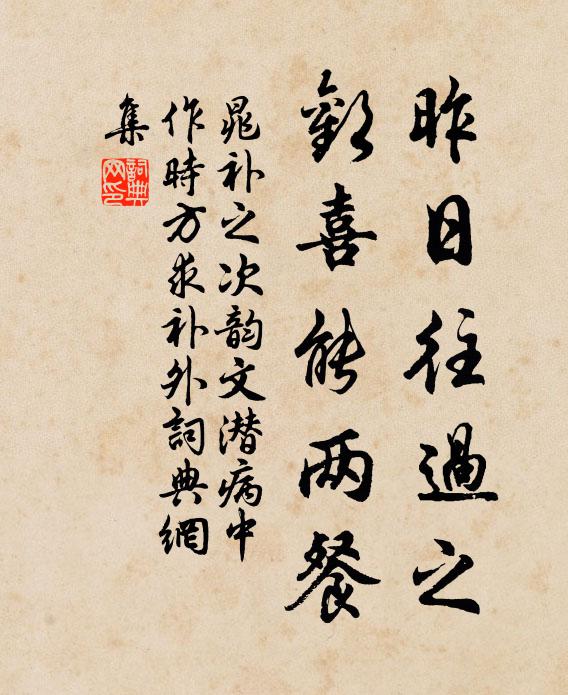 昨日往過之
歡喜能两餐
晁补之次韵文潜病中
作時方求补外詞典網
集
詞典
网印